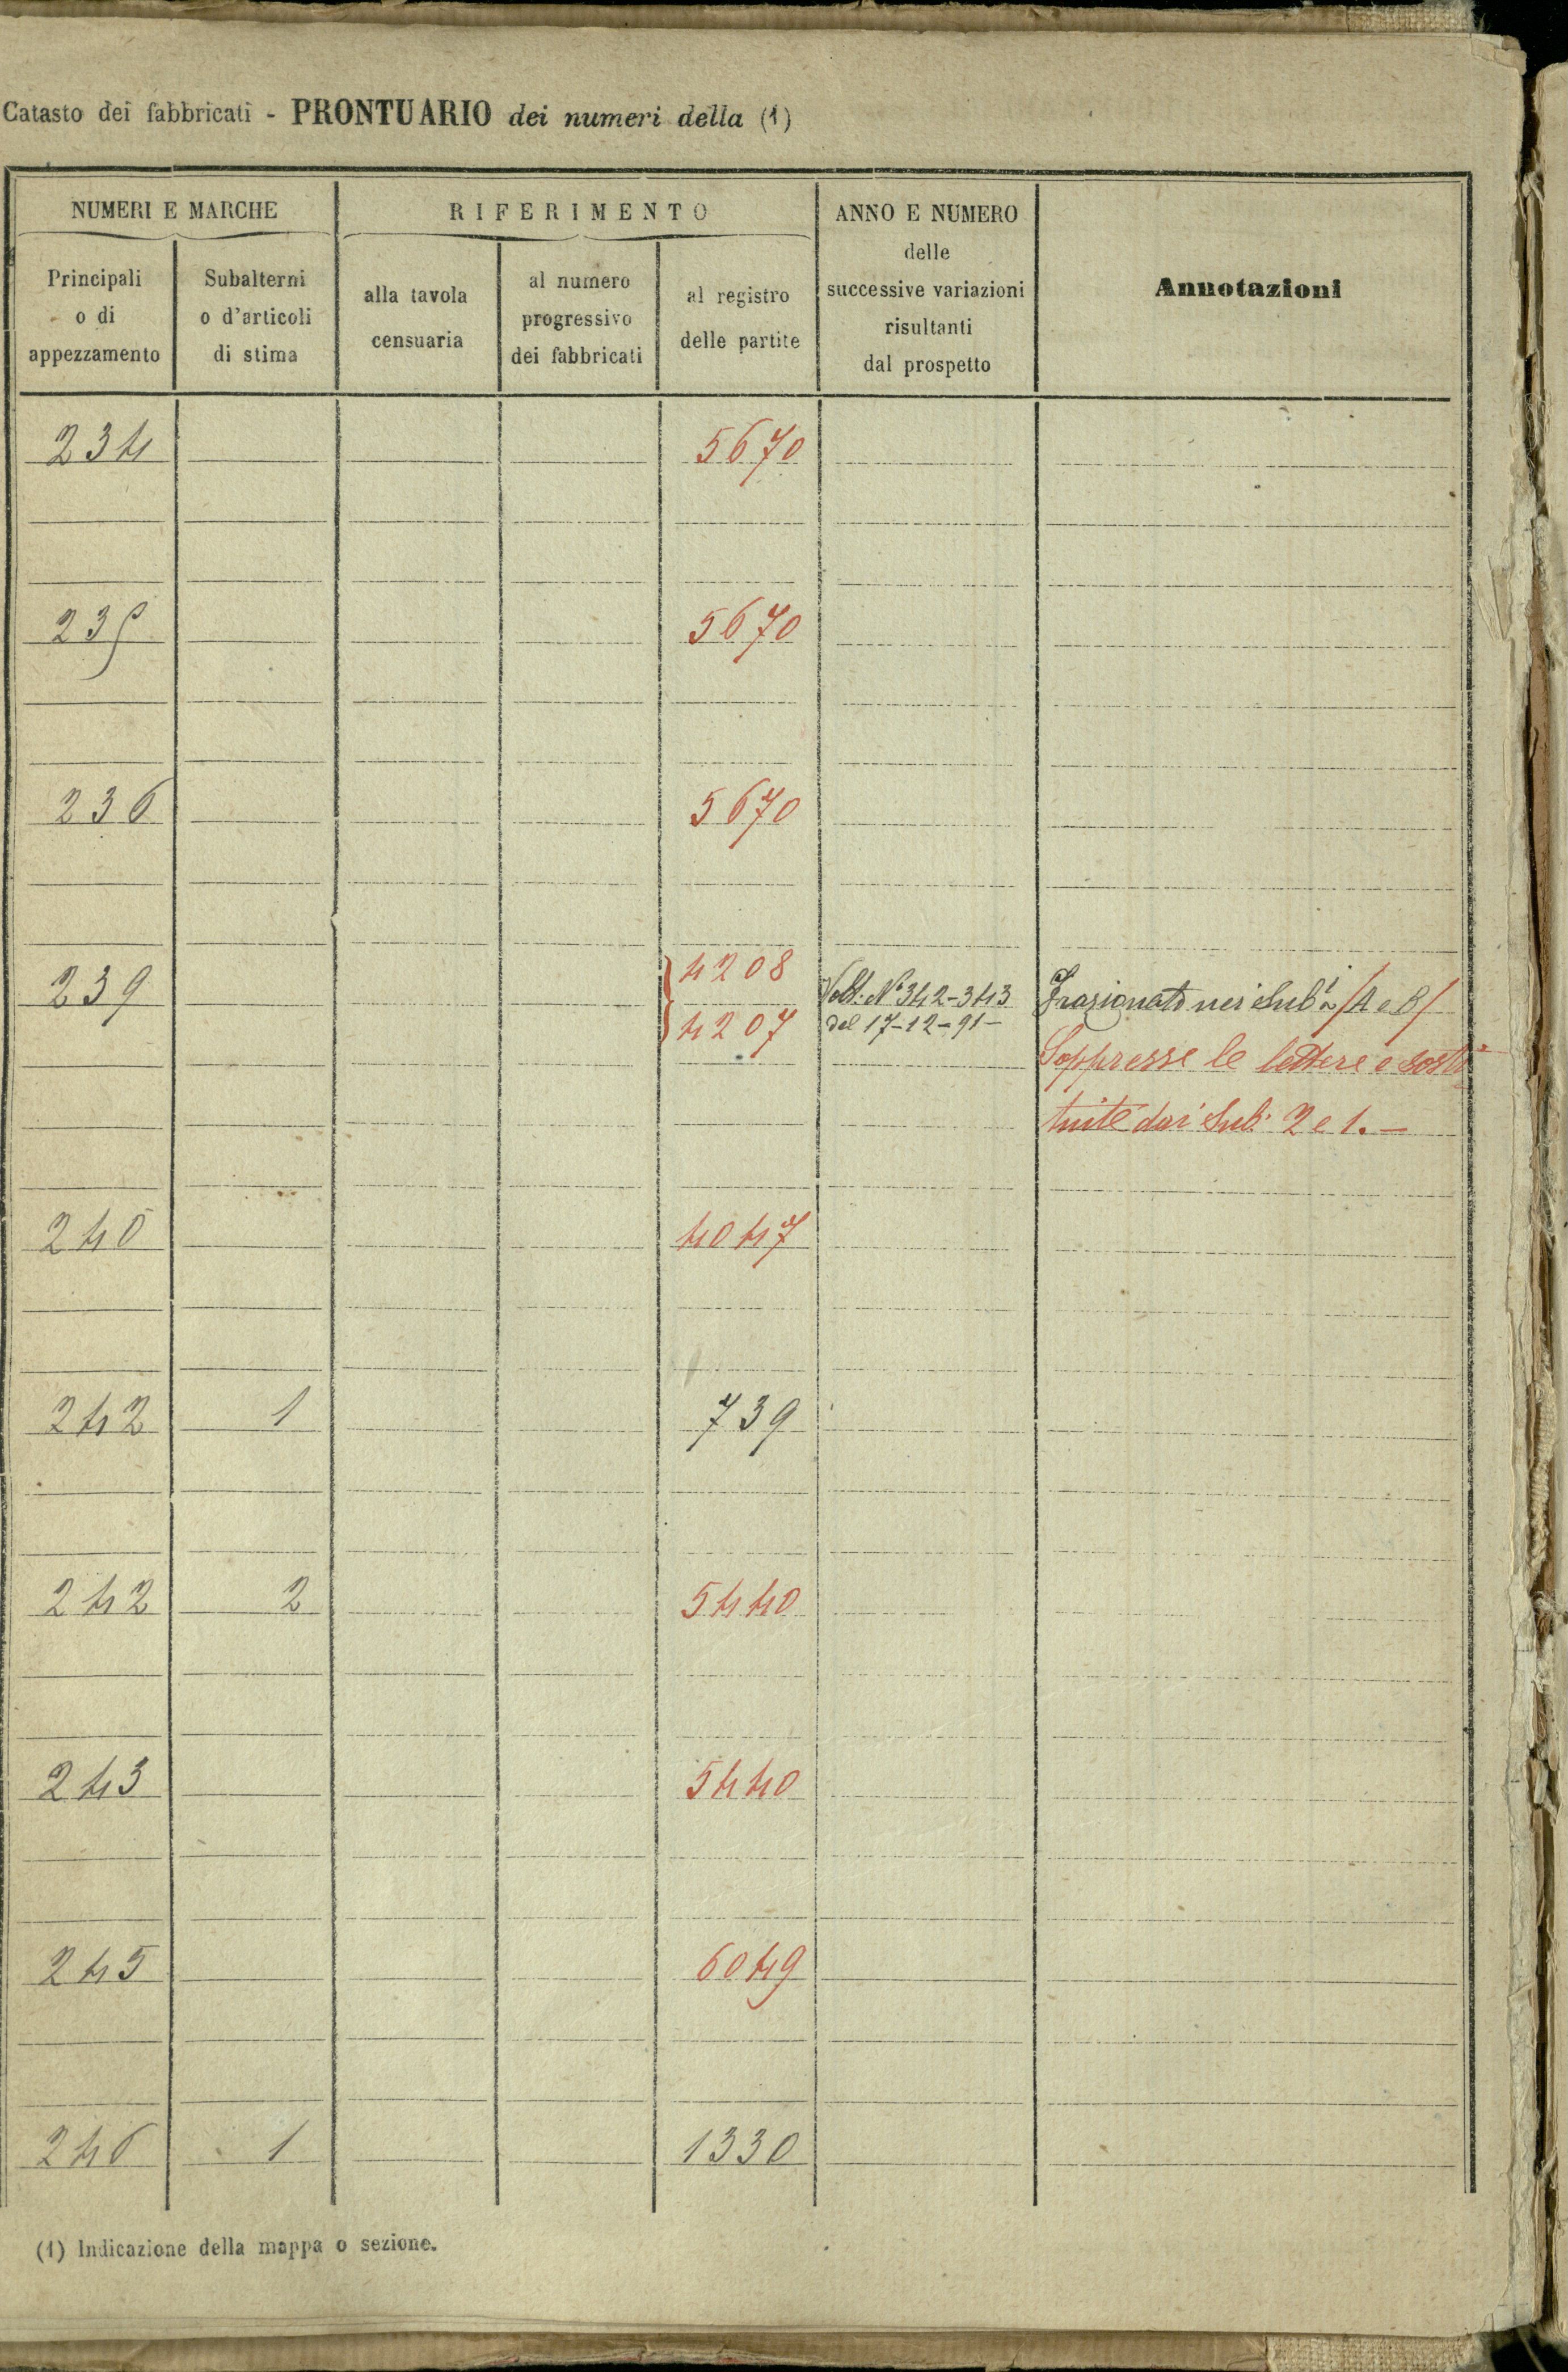 Catasto dei fabbricati - PRONTUARIO dei numeri della (1)
NUMERI E MARCHE
RIFERIMENTO
ANNO E NUMERO
delle
successive variazioni
risultanti
dal prospetto
Annotazioni
Principali
o di
appezzamento
Subalterni
o d'articoli
di stima
alla tavola
censuaria
al numero
progressivo
dei fabbricati
al registro
delle partite
234 5670
235 5670
236 5670
4208
239 N° 342-343 Frazionato nei Sub. /A e B/
4207 del 17-12-91-
Soppresse le lettere e sosti
tuite dai Sub. 2 e 1. -
240 4047
242 1 739
242 2 5440
243 5440
245 6049
246 1 1330
(1) Indicazione della mappa o sezione.